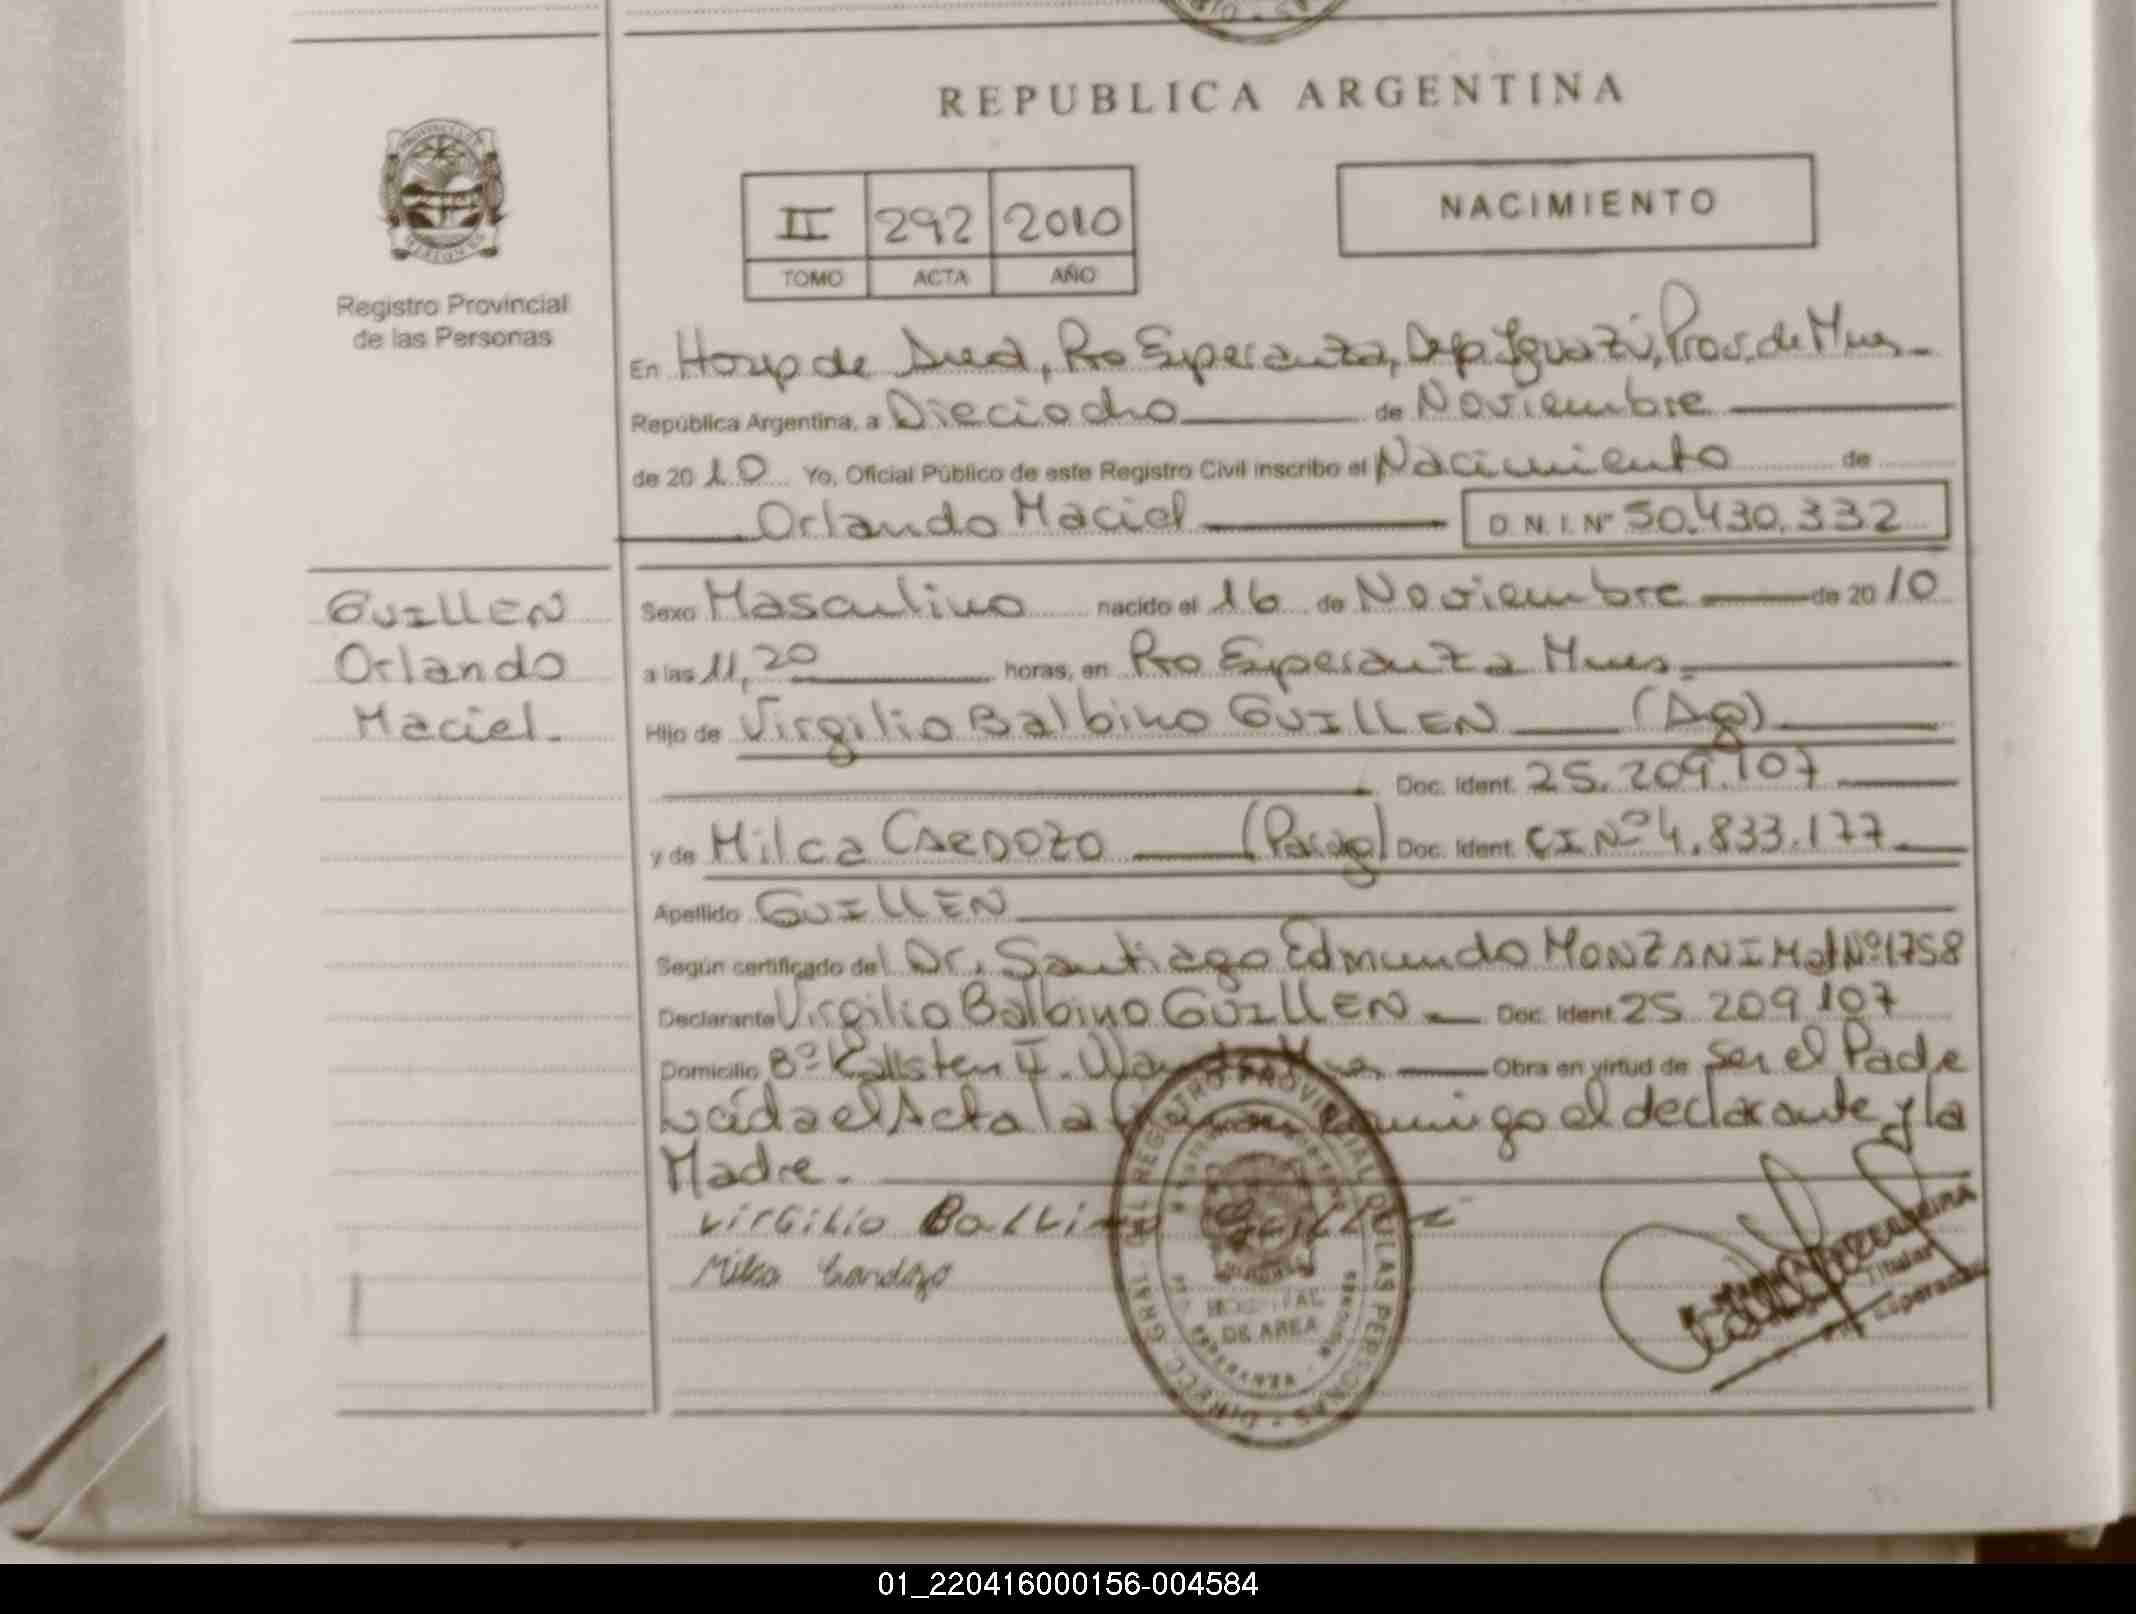 REPUBLICA ARGENTINA
II 292 2010
TOMO ACTA AÑO
NACIMIENTO
Registro Provincial
de las Personas
En Hosp de Area, Pto Esperanza, Dep. Iguazú, Prov. de Mnes
República Argentina, a Dieciocho de Noviembre
de 2010 Yo, Oficial Público de este Registro Civil inscribo el Nacimiento de
Orlando Maciel D.N.I. Nº 50.430.332
GUILLEN
Orlando
Maciel.
Sexo Masculino nacido el 16 de Noviembre de 2010
a las 11,20 horas, en Pto Esperanza Mnes.
Hijo de Virgilio Balbino GUILLEN (Ag)
Doc. Ident. 25.209.107
y de Milca CARDOZO (Parag) Doc. Ident. CI Nº 4.833.177
Apellido GUILLEN
Según certificado del Dr. Santiago Edmundo MONZANI Mat Nº 1758
Declarante Virgilio Balbino GUILLEN Doc. Ident. 25.209.107
Domicilio Bº Kallsten II. Wanda Mnes Obra en virtud de Ser el Padre
Leída el Acta la firman conmigo el declarante y la
Madre.
Virgilio Balbino Guillen
Milca Cardozo
HOSPITAL
DE AREA
Titular
01_220416000156-004584